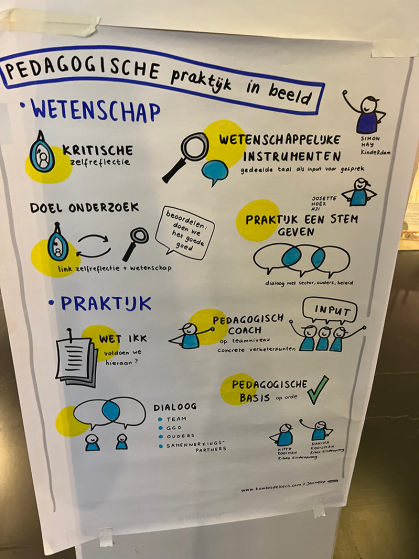 PEDAGOGISCHE praktijk in beeld
• WETENSCHAP
SIMON
HAY
KinderRdam
KRITISCHE
zelfreflectie
WETENSCHAPPELIJKE
INSTRUMENTEN
gedeelde taal als input voor gesprek
JOSETTE
HOEX
NJI
DOEL ONDERZOEK
beoordelen:
doen we
het goede
goed
link zelfreflectie + wetenschap
PRAKTIJK EEN STEM
GEVEN
dialoog met sector, ouders, beleid
• PRAKTIJK
WET IKK
voldoen we
hieraan?
PEDAGOGISCH
COACH
op teamniveau
concrete verbeterpunten
INPUT
PEDAGOGISCHE
BASIS op orde
DIALOOG
• TEAM
• GGD
• OUDERS
• SAMENWERKINGS-
PARTNERS